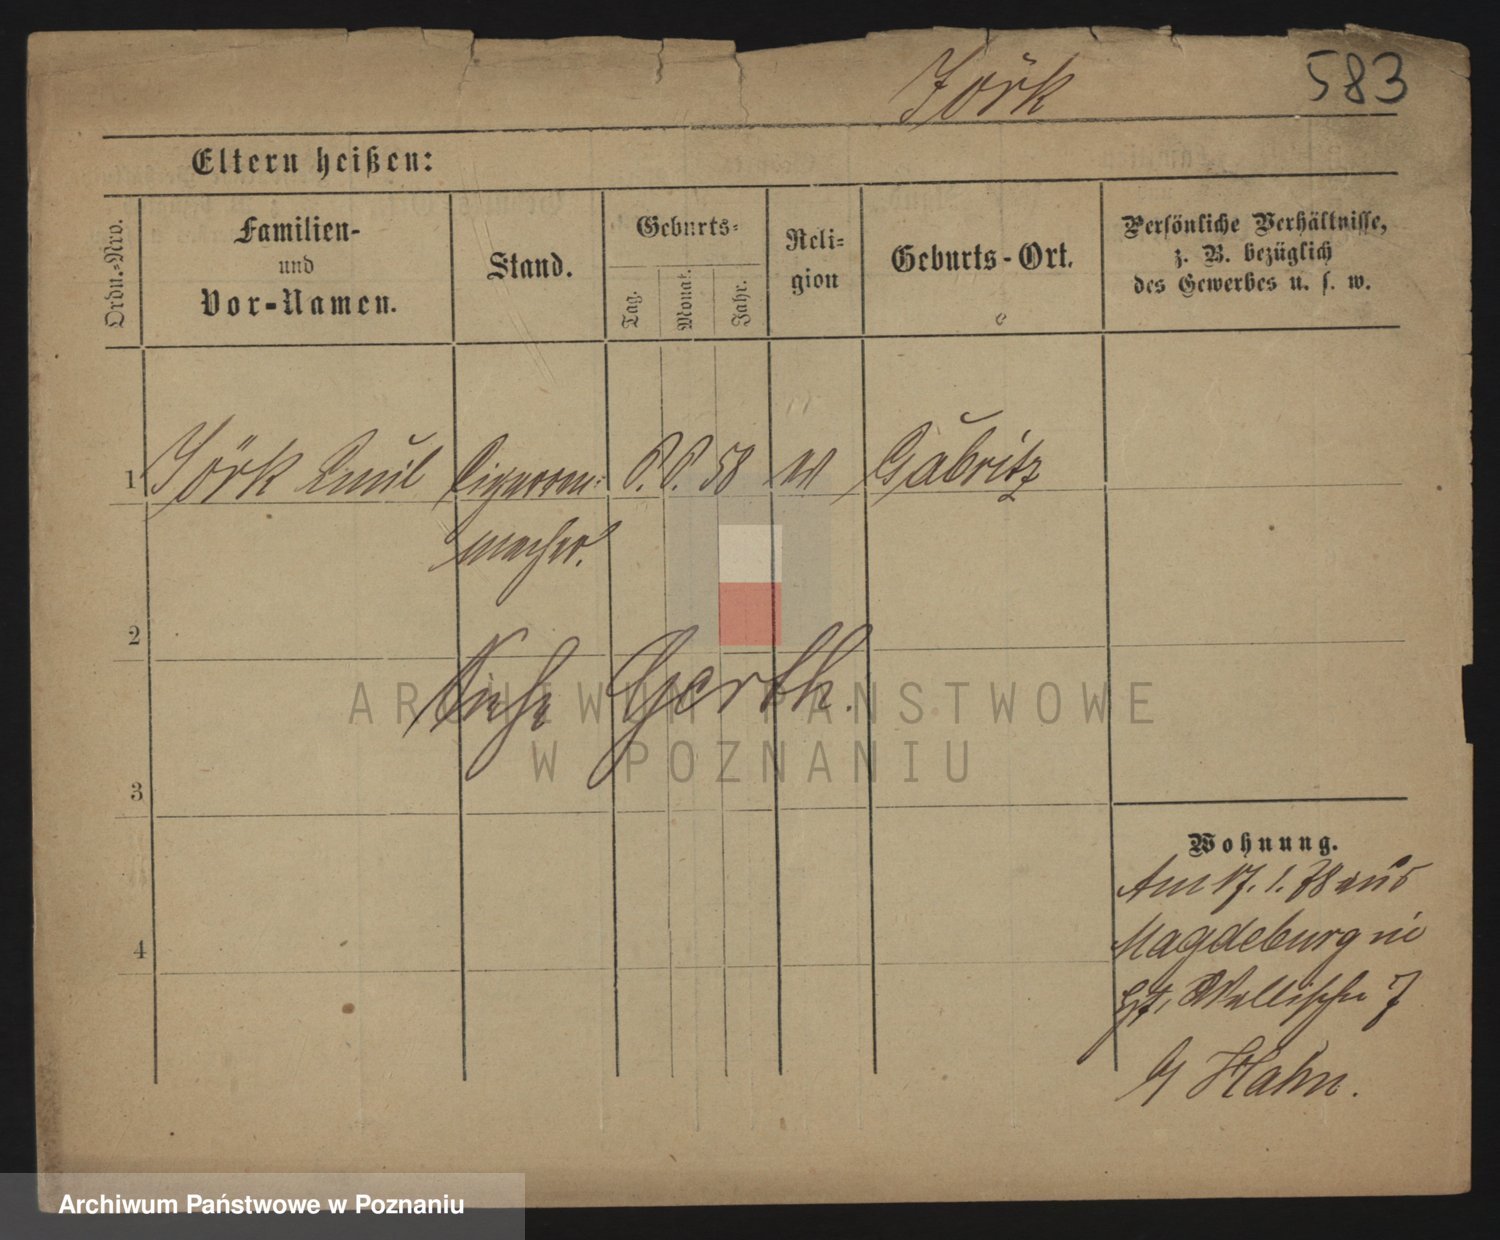 Jörk
583
Eltern heißen:
Ordn.-Nro.
Familien-
und
Vor-Namen.
Stand.
Geburts-
Tag.
Monat.
Jahr.
Reli-
gion
Geburts-Ort.
Persönliche Verhältnisse,
z. B. bezüglich
des Gewerbes u. s. w.
1 Jörk Emil Cigarren- 8. 8. 58 Gabritz
macher.
2
Siehe Gerth.
ARCHIWUM PAŃSTWOWE
W POZNANIU
3
Wohnung.
Am 17. 1. 78 aus
Magdeburg
4
Wallischei 7
Hahn.
Archiwum Państwowe w Poznaniu